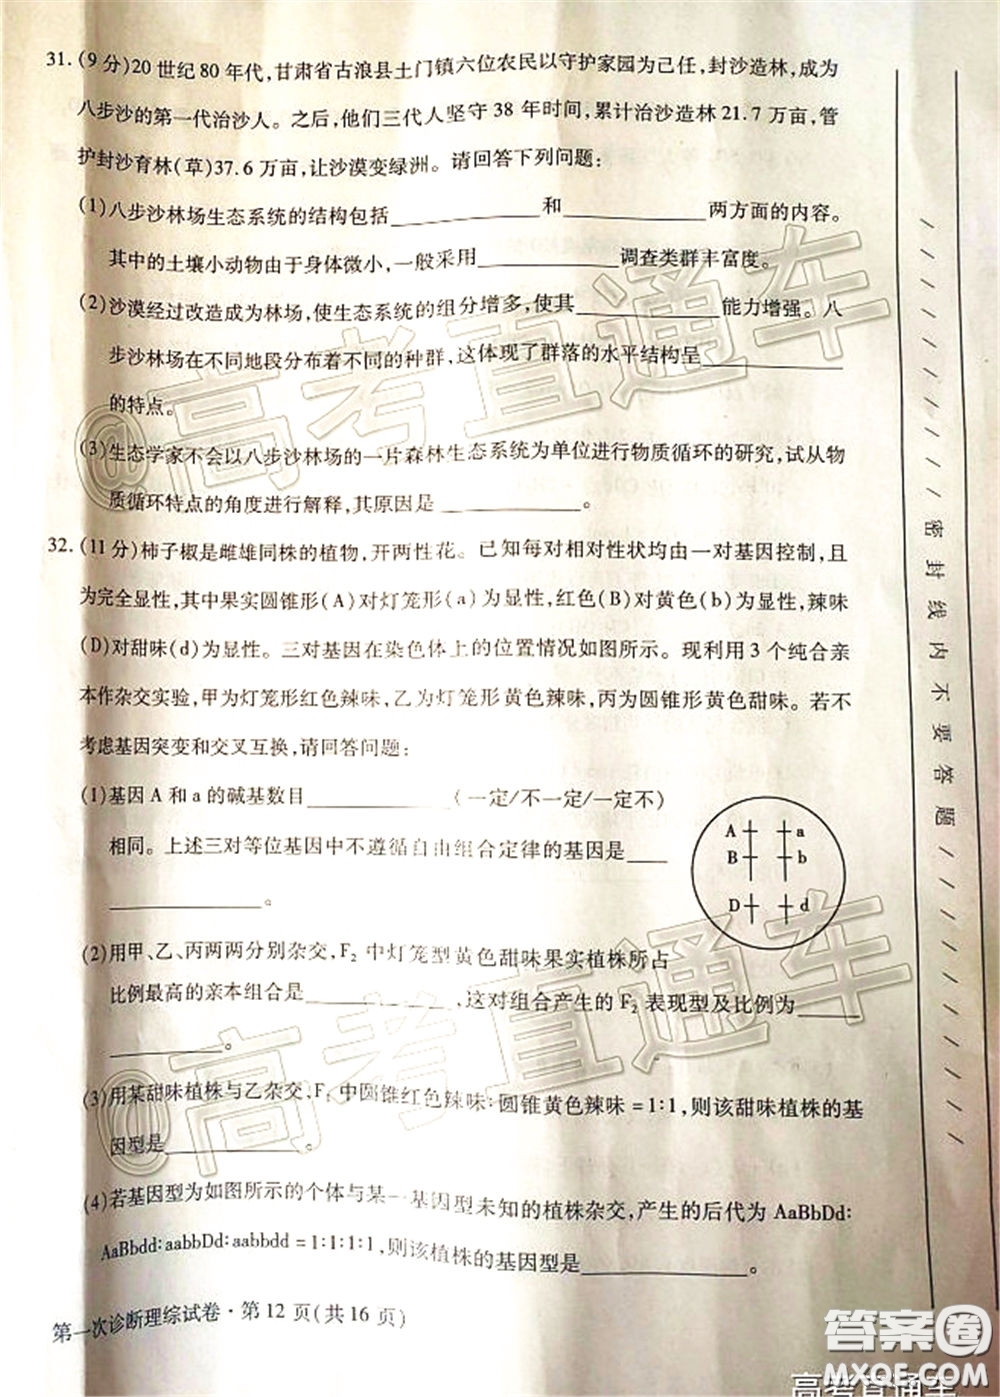 31.(9分)20世纪80年代,甘肃省古浪县土门镇六位农民以守护家园为己任,封沙造林,成为
八步沙的第一代治沙人。之后,他们三代人坚守38年时间,累计治沙造林21.7万亩,管
护封沙育林(草)37.6万亩,让沙漠变绿洲。请回答下列问题:
(1)八步沙林场生态系统的结构包括____________和____________两方面的内容。
其中的土壤小动物由于身体微小,一般采用____________调查类群丰富度。
(2)沙漠经过改造成为林场,使生态系统的组分增多,使其____________能力增强。八
步沙林场在不同地段分布着不同的种群,这体现了群落的水平结构呈____________
的特点。
(3)生态学家不会以八步沙林场的一片森林生态系统为单位进行物质循环的研究,试从物
质循环特点的角度进行解释,其原因是____________。
32.(11分)柿子椒是雌雄同株的植物,开两性花。已知每对相对性状均由一对基因控制,且
为完全显性,其中果实圆锥形(A)对灯笼形(a)为显性,红色(B)对黄色(b)为显性,辣味
(D)对甜味(d)为显性。三对基因在染色体上的位置情况如图所示。现利用3个纯合亲
本作杂交实验,甲为灯笼形红色辣味,乙为灯笼形黄色辣味,丙为圆锥形黄色甜味。若不
考虑基因突变和交叉互换,请回答问题:
(1)基因A和a的碱基数目____________(一定/不一定/一定不)
相同。上述三对等位基因中不遵循自由组合定律的基因是____
____________。
A a
B b
D d
(2)用甲、乙、丙两两分别杂交,F₂中灯笼型黄色甜味果实植株所占
比例最高的亲本组合是____________,这对组合产生的F₂表现型及比例为______
____________。
(3)用某甜味植株与乙杂交,F₁中圆锥红色辣味:圆锥黄色辣味=1:1,则该甜味植株的基
因型是____________。
(4)若基因型为如图所示的个体与某一基因型未知的植株杂交,产生的后代为AaBbDd:
AaBbdd:aabbDd:aabbdd=1:1:1:1,则该植株的基因型是____________。
第一次诊断理综试卷·第12页(共16页)
密封线内不要答题
@高考直通车
@高考直通车
高考直通车
答案圈
MXQE.COM